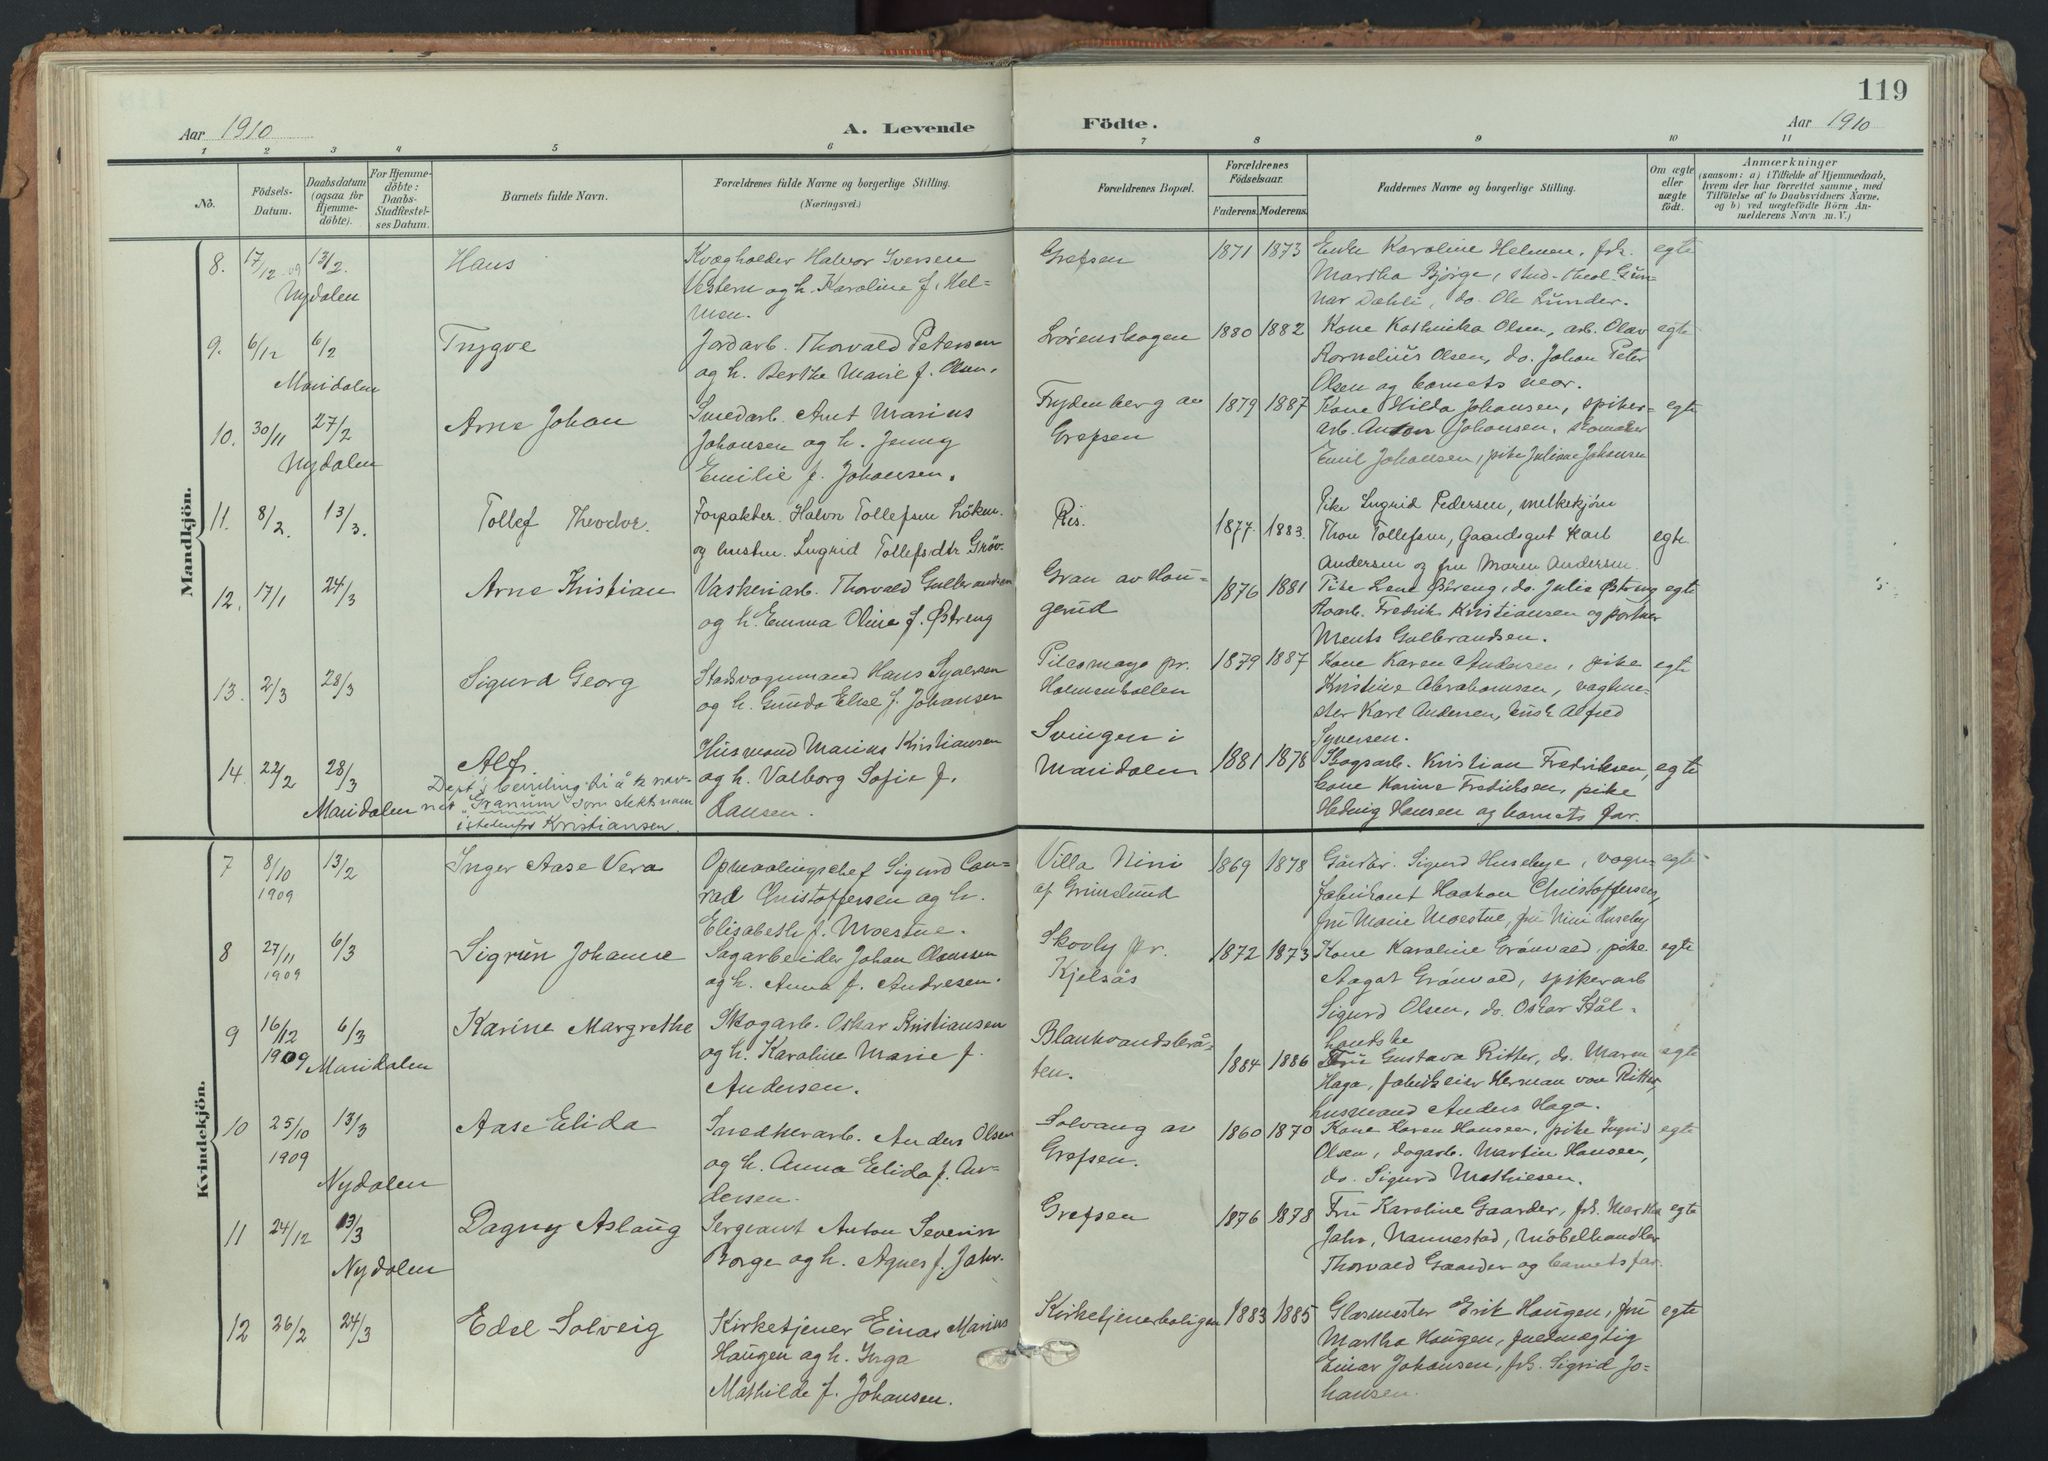 119
Aar 1910
A. Levende
Födte.
Aar 1910
1 2 3 4 5 6 7 8 9 10 11
No.
Födsels-
Datum.
Daabsdatum
(ogsaa for
Hjemme-
döbte).
For Hjemme-
döbte:
Daabs-
Stadfæstel-
ses Datum.
Barnets fulde Navn.
Forældrenes fulde Navne og borgerlige Stilling.
(Næringsvei.)
Forældrenes Bopæl.
Forældrenes
Födselsaar.
Faderens. Moderens.
Faddernes Navne og borgerlige Stilling.
Om ægte
eller
uægte
födt.
Anmærkninger
(saasom: a) i Tilfælde af Hjemmedaab,
hvem der har forrettet samme, med
Tilföielse af to Daabsvidners Navne,
og b) ved uægtefödte Börn An-
melderens Navn m. V.)
Mandkjön.
8. 17/12 09 13/2. Hans
Nydalen
Kvægholder Halvor Iversen
Vestern og h. Karoline f. Hel-
men.
Grefsen 1871 1873
Enke Karoline Helmen, frk.
Martha Bjørge, stud. theol. Gun-
nar Dæhli, do. Ole Lunder.
egte
9. 6/12 6/2 Trygve
Maridalen
Jordarb. Thorvald Petersen
og h. Berthe Marie f. Olsen.
Lørenskogen 1880 1882
Kone Kathinka Olsen, arb. Olav
Kornelius Olsen, do. Johan Peter
Olsen og barnets mor.
egte
10. 30/11 27/2 Arne Johan
Nydalen
Smedarb. Arnt Marius
Johansen og h. Jenny
Emilie f. Johansen.
Frydenberg av
Grefsen
1879 1887
Kone Hilda Johansen, spiker-
arb. Anton Johansen, skomaker
Emil Johansen, pike Juliane Johansen
egte
11. 8/2. 13/3. Tollef Theodor.
Forpakter. Halvn Tollefsen Løken
og hustru. Ingrid Tollefsdtr Grøv.
Ris. 1877. 1883.
Pike Ingrid Pedersen, melkekjører
Thore Tollefsen, Gaardsgut Karl
Andersen og fru Maren Andersen.
egte.
12. 17/1 24/3 Arne Kristian
Vaskeriarb. Thorvald Gulbrandsen
og h. Emma Oline f. Østreng
Gran av Hou-
gerud
1876 1881
Pike Lene Østreng, do. Julie Østreng
Fredrik Kristiansen og portner
Ments Gulbrandsen.
egte
13. 2/3 28/3 Sigurd Georg
Stadsvognmand Hans Syversen
og h. Gunda Elise f. Johansen
Pilcomayo pr.
Holmenkollen
1879 1887
Kone Karen Andersen, pike
Kristine Abrahamsen, vagtme-
ster Karl Andersen, Alfred
Syversen.
egte
14. 22/2 28/3 Alf.
Maridalen
Dept's bevilling til å ta nav-
net Granum som slektsnavn
istedenfor Kristiansen.
Husmand Marius Kristiansen
og h. Valborg Sofie f.
Hansen.
Svingen i
Maridalen
1881 1878
Skogsarb. Kristian Fredriksen,
kone Karine Fredriksen, pike
Hedvig Hansen og barnets far.
egte
Kvindekjön.
7 8/10 1909 13/2 Inger Aase Vera
Opmaalingschef Sigurd Con-
rad Christoffersen og h.
Elisabeth f. Moestue.
Villa Nini
af Grimelund
1869 1878
Sigurd Huseby, vogn-
fabrikant Haakon Christoffersen,
fru Marie Moestue, fru Nini Huseby
egte
8 27/11 1909 6/3 Sigrun Johanne
Sagarbeider Johan Olaussen
og h. Anna f. Andresen.
Skovly pr.
Kjelsås
1872 1873
Kone Karoline Grönvold, pike
Aagot Grönvold, spikerarb
Sigurd Olsen, do. Oskar Stål-
handske
egte
9 16/12 1909 6/3 Karine Margrethe
Maridalen
Skogarb. Oskar Kristiansen
og h. Karoline Marie f.
Andersen.
Blankvandsbrå-
ten.
1884 1886
Fru Gustava Ritter, do. Maren
Haga, fabrikeier Herman von Ritter,
husmand Anders Haga.
egte
10 25/10 1909 13/3 Aase Elida
Nydalen
Snedkerarb. Anders Olsen
og h. Anna Elida f. An-
dersen.
Solvang av
Grefsen.
1860 1870
Kone Karen Hansen, pike Ingrid
Olsen, dagarb. Martin Hansen,
do. Sigurd Mathiesen.
egte
11 24/12 13/3 Dagny Aslaug
Nydalen
Sergeant Anton Severin
Borge og h. Agnes f. Jahr.
Grefsen 1876 1878
Fru Karoline Gaarder, frk. Martha
Jahr, Nannestad, Møbelhandler
Thorvald Gaarder og barnets far.
egte
12 26/2 24/3 Edel Solveig
Kirketjener Einar Marius
Haugen og h. Inga
Mathilde f. Johansen.
Kirketjenerboligen 1883 1885
Glasmester Erik Haugen, fru
Martha Haugen, fuldmægtig
Einar Johansen, frk. Sigrid Jo-
hansen.
egte